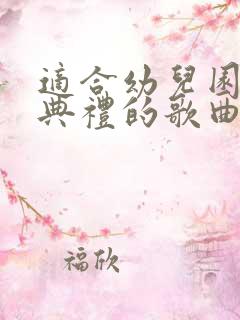 適合幼兒園
典禮的歌曲
福欣